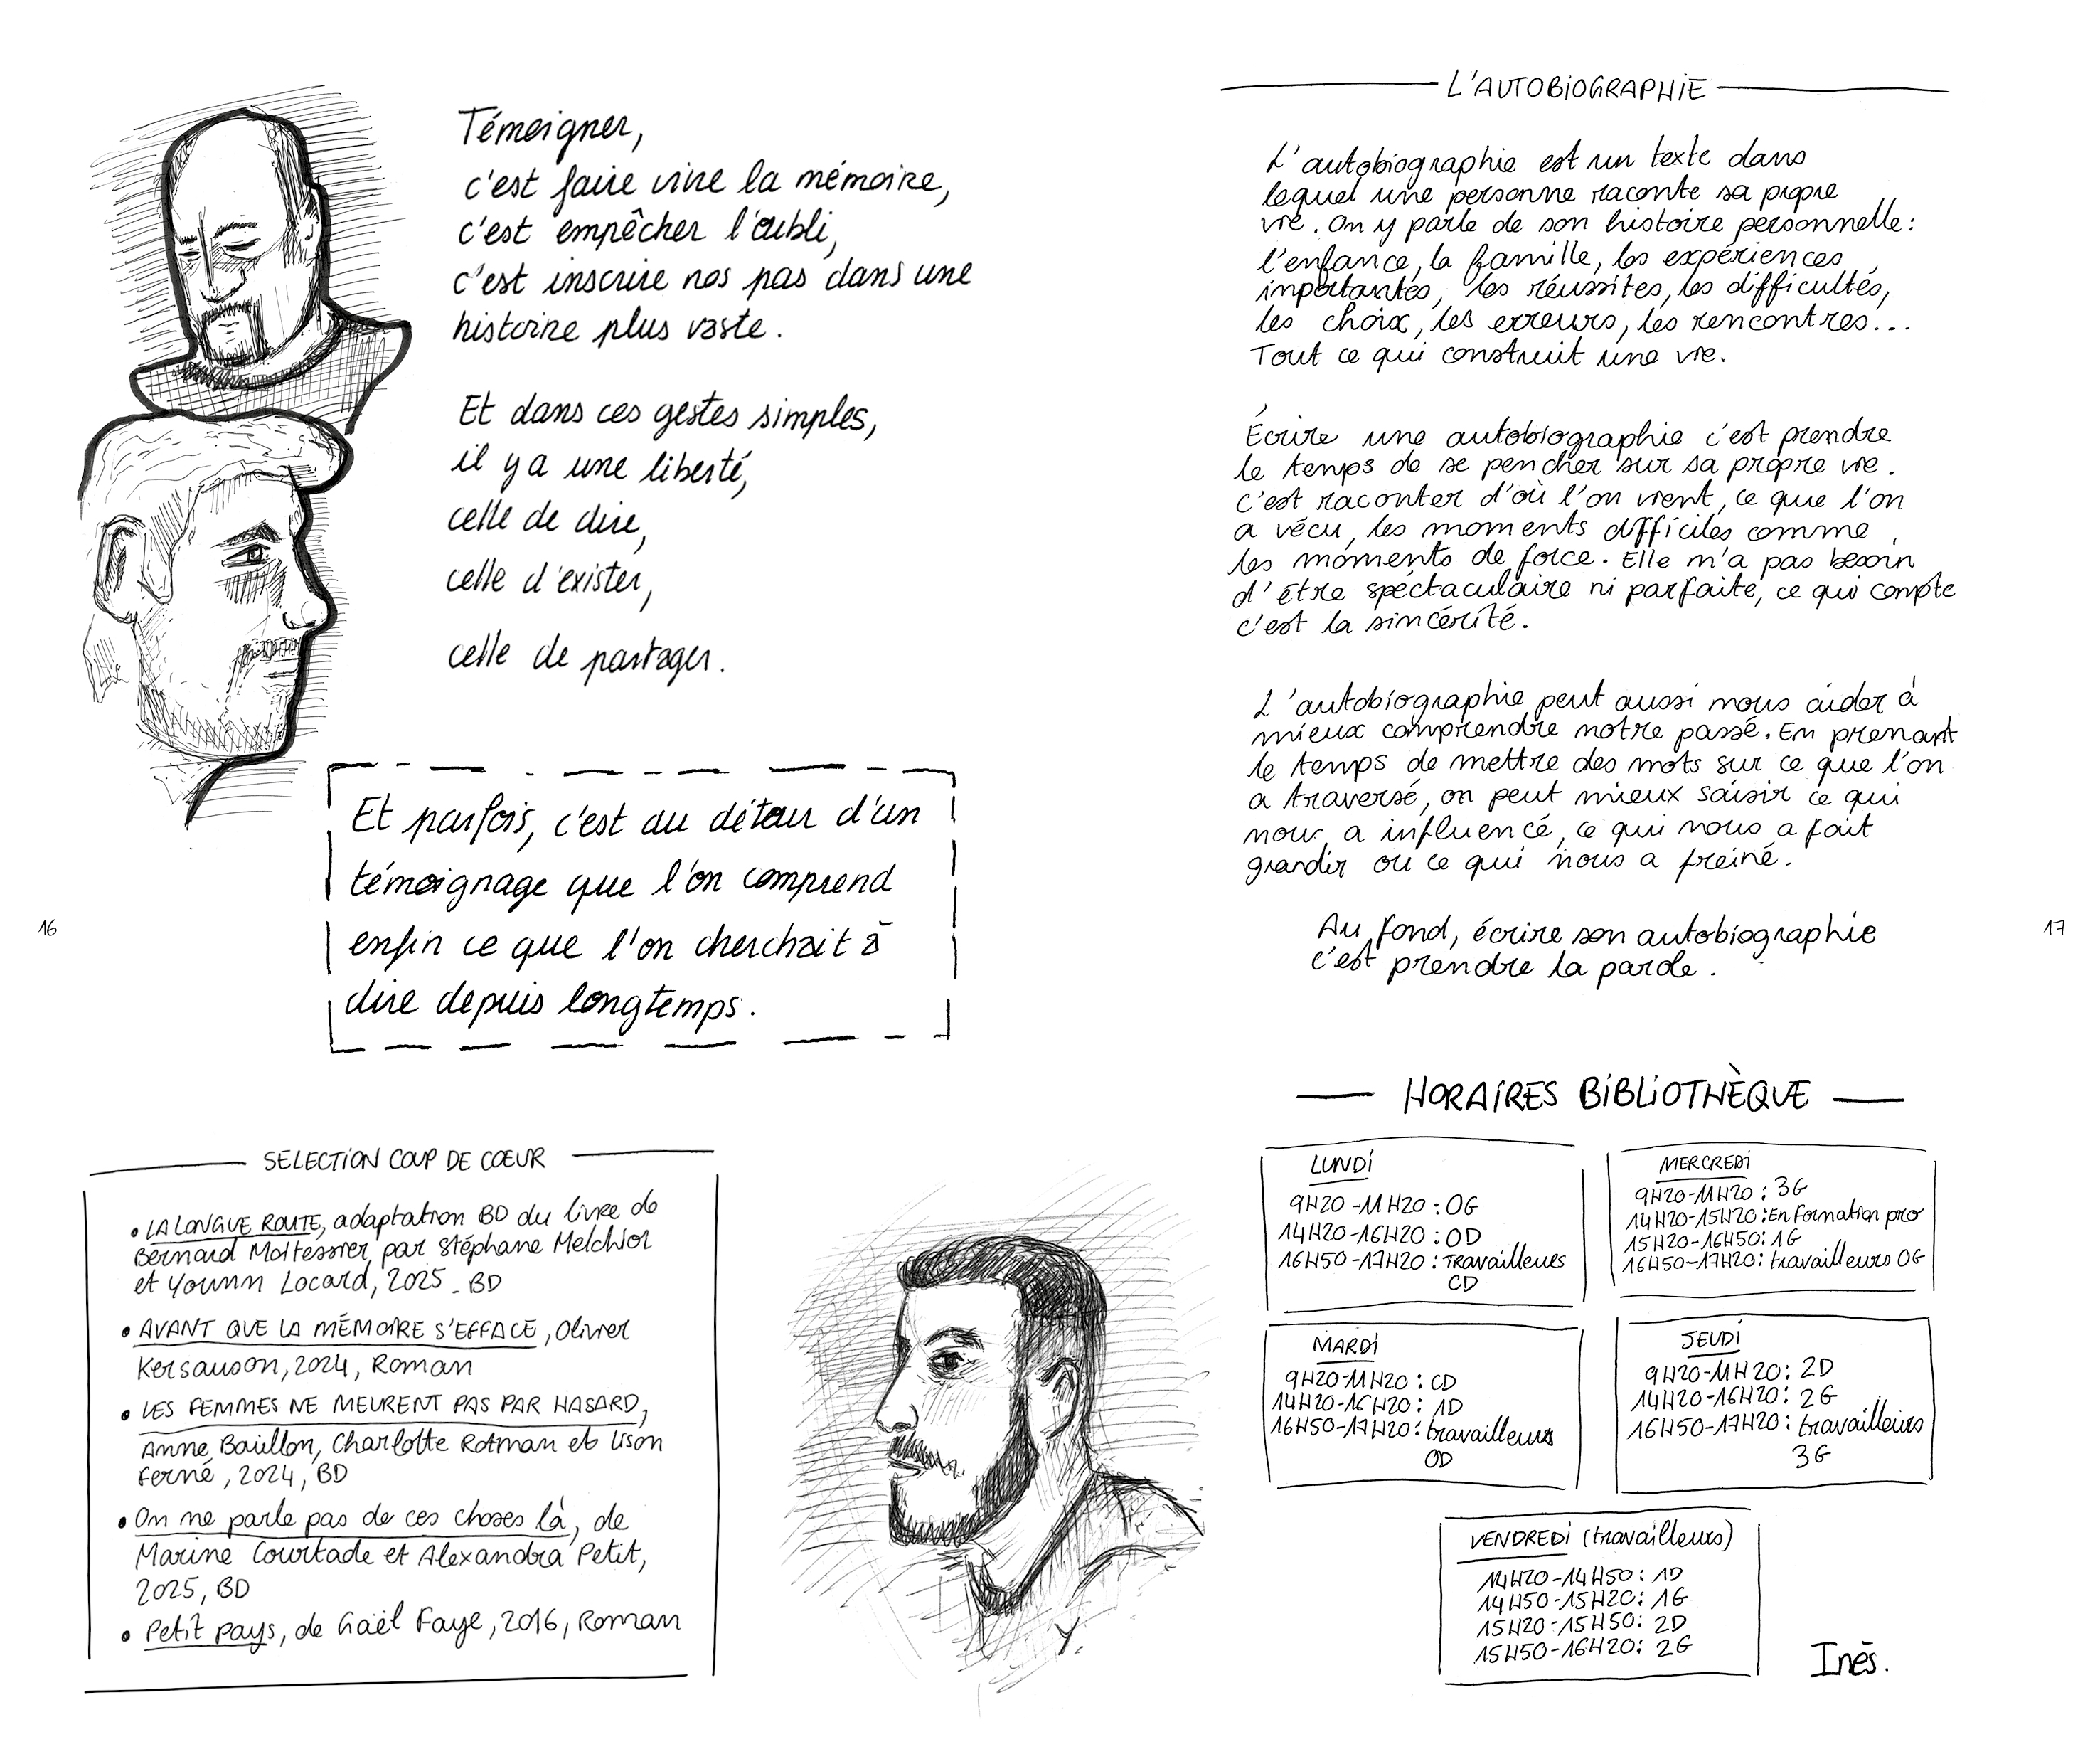 Témoigner,
c'est faire vivre la mémoire,
c'est empêcher l'oubli,
c'est inscrire nos pas dans une
histoire plus vaste.
Et dans ces gestes simples,
il y a une liberté,
celle de dire,
celle d'exister,
celle de partager.
Et parfois, c'est au détour d'un
témoignage que l'on comprend
enfin ce que l'on cherchait à
dire depuis longtemps.
16
SELECTION COUP DE CŒUR
• LA LONGUE ROUTE, adaptation BD du livre de
Bernard Moitessier, par Stéphane Melchior
et Younn Locard, 2025 _ BD
• AVANT QUE LA MÉMOIRE S'EFFACE, Olivier
Kersauson, 2024, Roman
• LES FEMMES NE MEURENT PAS PAR HASARD,
Anne Bouillon, Charlotte Rotman et Lison
Ferné, 2024, BD
• On ne parle pas de ces choses là, de
Marine Courtade et Alexandra Petit,
2025, BD
• Petit pays, de Gaël Faye, 2016, Roman
Y.
L'AUTOBIOGRAPHIE
L'autobiographie est un texte dans
lequel une personne raconte sa propre
vie. On y parle de son histoire personnelle :
l'enfance, la famille, les expériences
importantes, les réussites, les difficultés,
les choix, les erreurs, les rencontres...
Tout ce qui construit une vie.
Écrire une autobiographie c'est prendre
le temps de se pencher sur sa propre vie.
C'est raconter d'où l'on vient, ce que l'on
a vécu, les moments difficiles comme
les moments de force. Elle n'a pas besoin
d'être spéctaculaire ni parfaite, ce qui compte
c'est la sincérité.
L'autobiographie peut aussi nous aider à
mieux comprendre notre passé. En prenant
le temps de mettre des mots sur ce que l'on
a traversé, on peut mieux saisir ce qui
nous a influencé, ce qui nous a fait
grandir ou ce qui nous a freiné.
Au fond, écrire son autobiographie
c'est prendre la parole.
17
HORAIRES BIBLIOTHÈQUE
LUNDI
9H20-11H20 : OG
14H20-16H20 : OD
16H50-17H20 : TRAVAILLEURS
CD
MERCREDI
9H20-11H20 : 3G
14H20-15H20 : En Formation pro
15H20-16H50: 1G
16H50-17H20: travailleurs OG
MARDI
9H20-11H20 : CD
14H20-16H20 : 1D
16H50-17H20 : travailleurs
OD
JEUDI
9H20-11H20: 2D
14H20-16H20: 2G
16H50-17H20: travailleurs
3G
VENDREDI (travailleurs)
14H20-14H50: 1D
14H50-15H20: 1G
15H20-15H50: 2D
15H50-16H20: 2G
Inès.